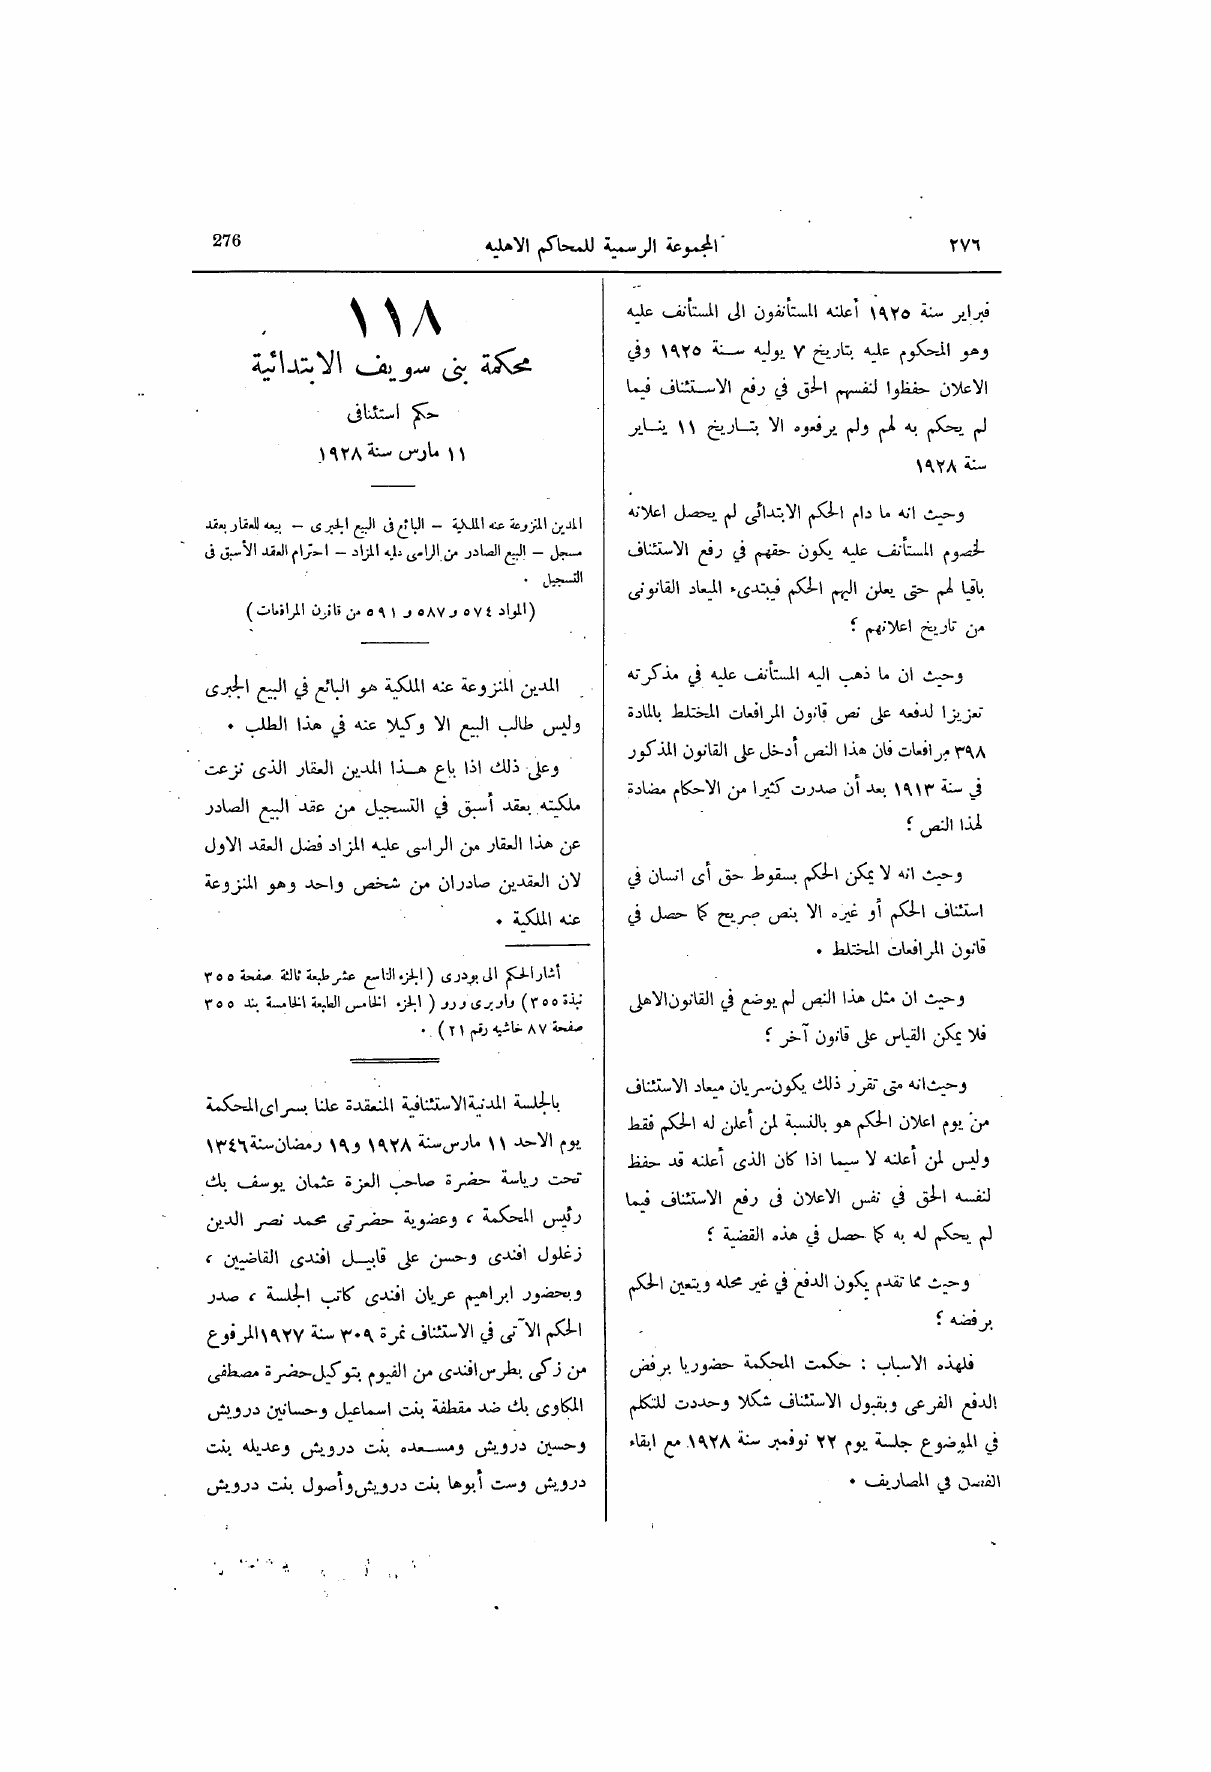 ٢٧٦
المجموعة الرسمية للمحاكم الاهليه
276
فبراير سنة ١٩٢٥ أعلنه المستأنفون الى المستأنف عليه
وهو المحكوم عليه بتاريخ ٧ يوليه سنة ١٩٢٥ وفي
الاعلان حفظوا لنفسهم الحق في رفع الاستئناف فيما
لم يحكم به لهم ولم يرفعوه الا بتاريخ ١١ يناير
سنة ١٩٢٨
وحيث انه ما دام الحكم الابتدائى لم يحصل اعلانه
لخصوم المستأنف عليه يكون حقهم في رفع الاستئناف
باقيا لهم حتى يعلن اليهم الحكم فيبتدىء الميعاد القانونى
من تاريخ اعلانهم ؟
وحيث ان ما ذهب اليه المستأنف عليه في مذكرته
تعزيزا لدفعه على نص قانون المرافعات المختلط بالمادة
٣٩٨ مرافعات فان هذا النص أدخل على القانون المذكور
في سنة ١٩١٣ بعد أن صدرت كثيرا من الاحكام مضادة
لهذا النص ؟
وحيث انه لا يمكن الحكم بسقوط حق أى انسان في
استئناف الحكم أو غيره الا بنص صريح كما حصل في
قانون المرافعات المختلط .
وحيث ان مثل هذا النص لم يوضع في القانون الاهلى
فلا يمكن القياس على قانون آخر ؟
وحيث انه متى تقرر ذلك يكون سريان ميعاد الاستئناف
من يوم اعلان الحكم هو بالنسبة لمن أعلن له الحكم فقط
وليس لمن أعلنه لا سيما اذا كان الذى أعلنه قد حفظ
لنفسه الحق في نفس الاعلان فى رفع الاستئناف فيما
لم يحكم له به كما حصل في هذه القضية ؟
وحيث مما تقدم يكون الدفع في غير محله ويتعين الحكم
برفضه ؟
فلهذه الاسباب : حكمت المحكمة حضوريا برفض
الدفع الفرعى وبقبول الاستئناف شكلا وحددت للتكلم
في الموضوع جلسة يوم ٢٢ نوفمبر سنة ١٩٢٨ مع ابقاء
الفصل في المصاريف .
١١٨
محكمة بنى سويف الابتدائية
حكم استئنافى
١١ مارس سنة ١٩٢٨
المدين المنزوعة عنه الملكية – البائع فى البيع الجبرى – بيعه للعقار بعقد
مسجل – البيع الصادر من الراسى عليه المزاد – احترام العقد الأسبق فى
التسجيل .
(المواد ٥٧٤ و ٥٨٧ و ٥٩١ من قانون المرافعات)
المدين المنزوعة عنه الملكية هو البائع في البيع الجبرى
وليس طالب البيع الا وكيلا عنه في هذا الطلب .
وعلى ذلك اذا باع هذا المدين العقار الذى نزعت
ملكيته بعقد أسبق في التسجيل من عقد البيع الصادر
عن هذا العقار من الراسى عليه المزاد فضل العقد الاول
لان العقدين صادران من شخص واحد وهو المنزوعة
عنه الملكية .
أشار الحكم الى بودرى ( الجزء التاسع عشر طبعة ثالثة صفحة ٣٥٥
نبذة ٣٥٥) واوبرى ورو ( الجزء الخامس الطبعة الخامسة بند ٣٥٥
صفحة ٨٧ حاشيه رقم ٢١) .
بالجلسة المدنية الاستئنافية المنعقدة علنا بسراى المحكمة
يوم الاحد ١١ مارس سنة ١٩٢٨ و١٩ رمضان سنة ١٣٤٦
تحت رياسة حضرة صاحب العزة عثمان يوسف بك
رئيس المحكمة ، وعضوية حضرتى محمد نصر الدين
زغلول افندى وحسن على قابيل افندى القاضيين ،
وبحضور ابراهيم عريان افندى كاتب الجلسة ، صدر
الحكم الآتى في الاستئناف نمرة ٣٠٩ سنة ١٩٢٧ المرفوع
من زكى بطرس افندى من الفيوم بتوكيل حضرة مصطفى
المكاوى بك ضد مقطفة بنت اسماعيل وحسانين درويش
وحسين درويش ومسعده بنت درويش وعديله بنت
درويش وست أبوها بنت درويش وأصول بنت درويش